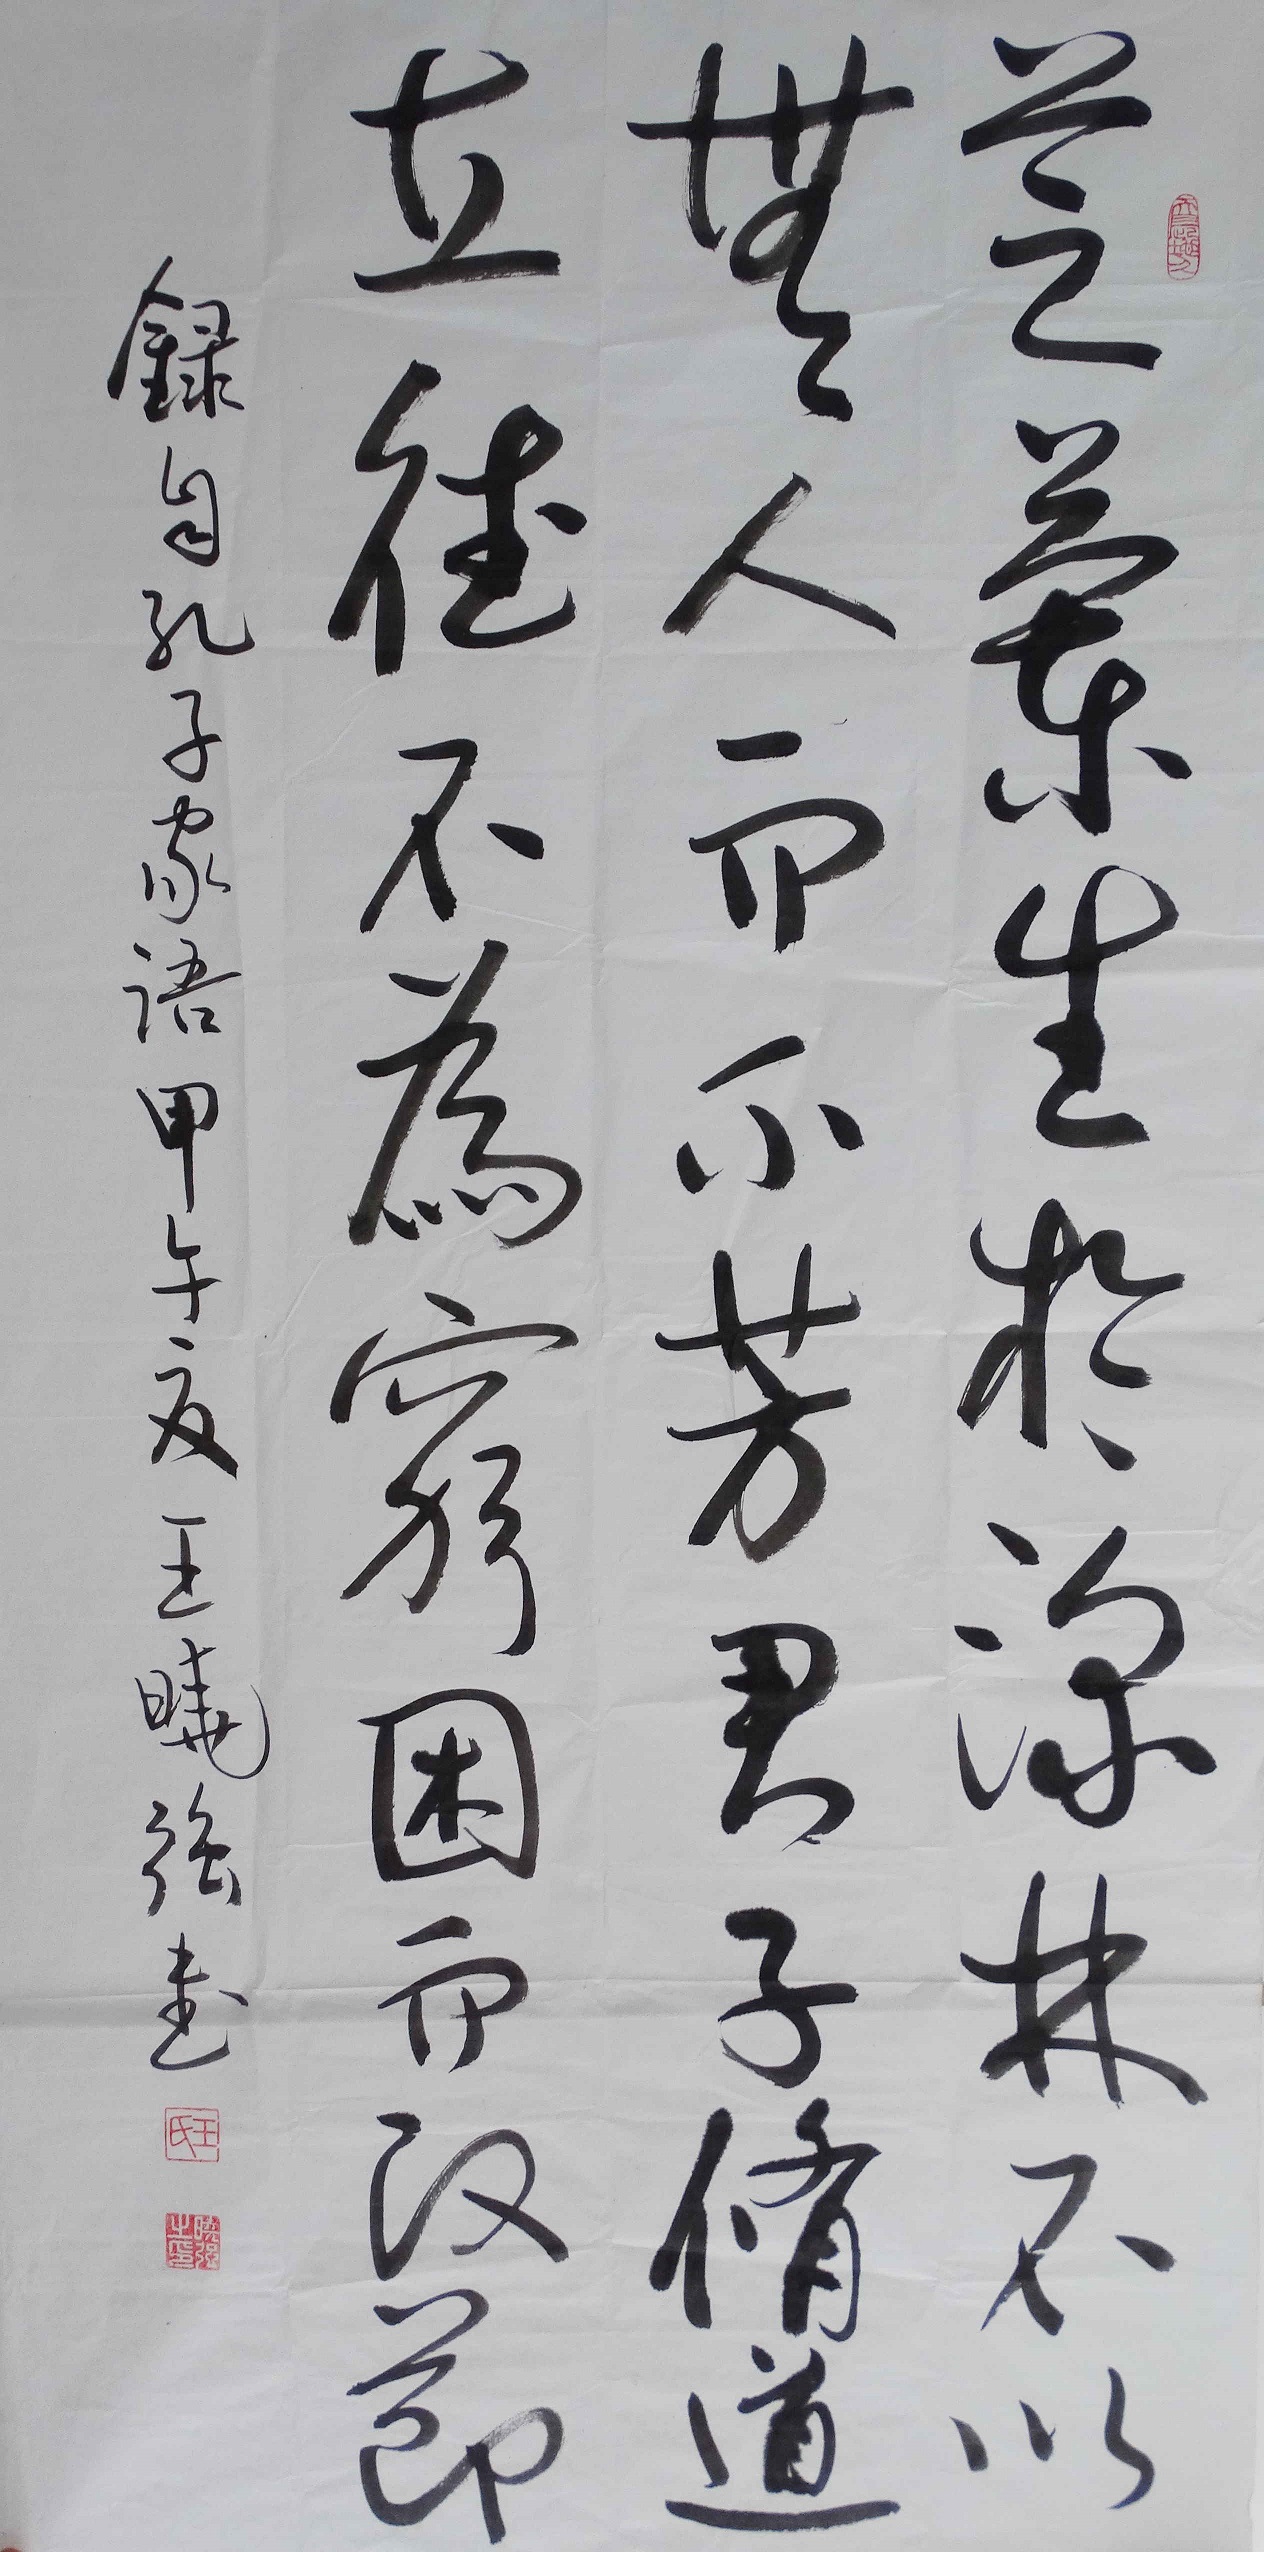 芝蘭生於深林不以
無人而不芳君子脩道
立德不為窮困而改節
録自孔子家語甲午夏王曉強書
王氏
曉強之印